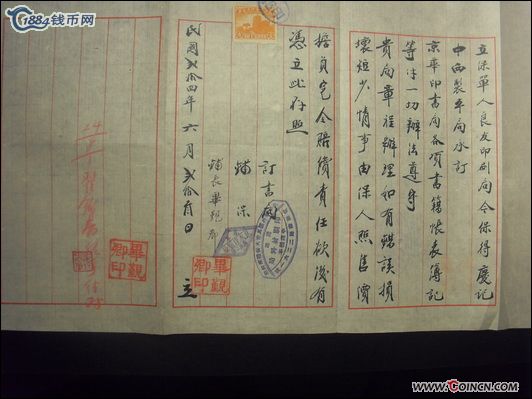 1884钱币网
立保單人良友印刷局今保得慶記
中西製本局承訂
京華印書局各項書籍帳表簿記
等件一切辦法遵守
貴局章程辦理如有錯誤損
壞短少情事由保人照售價
擔負完全賠償責任欲後有
憑立此存照
訂書局
鋪保
鋪長畢覲卿
畢覲卿印
民國貳拾四年六月貳拾 日 立
畢覲卿印
www.COINCN.com